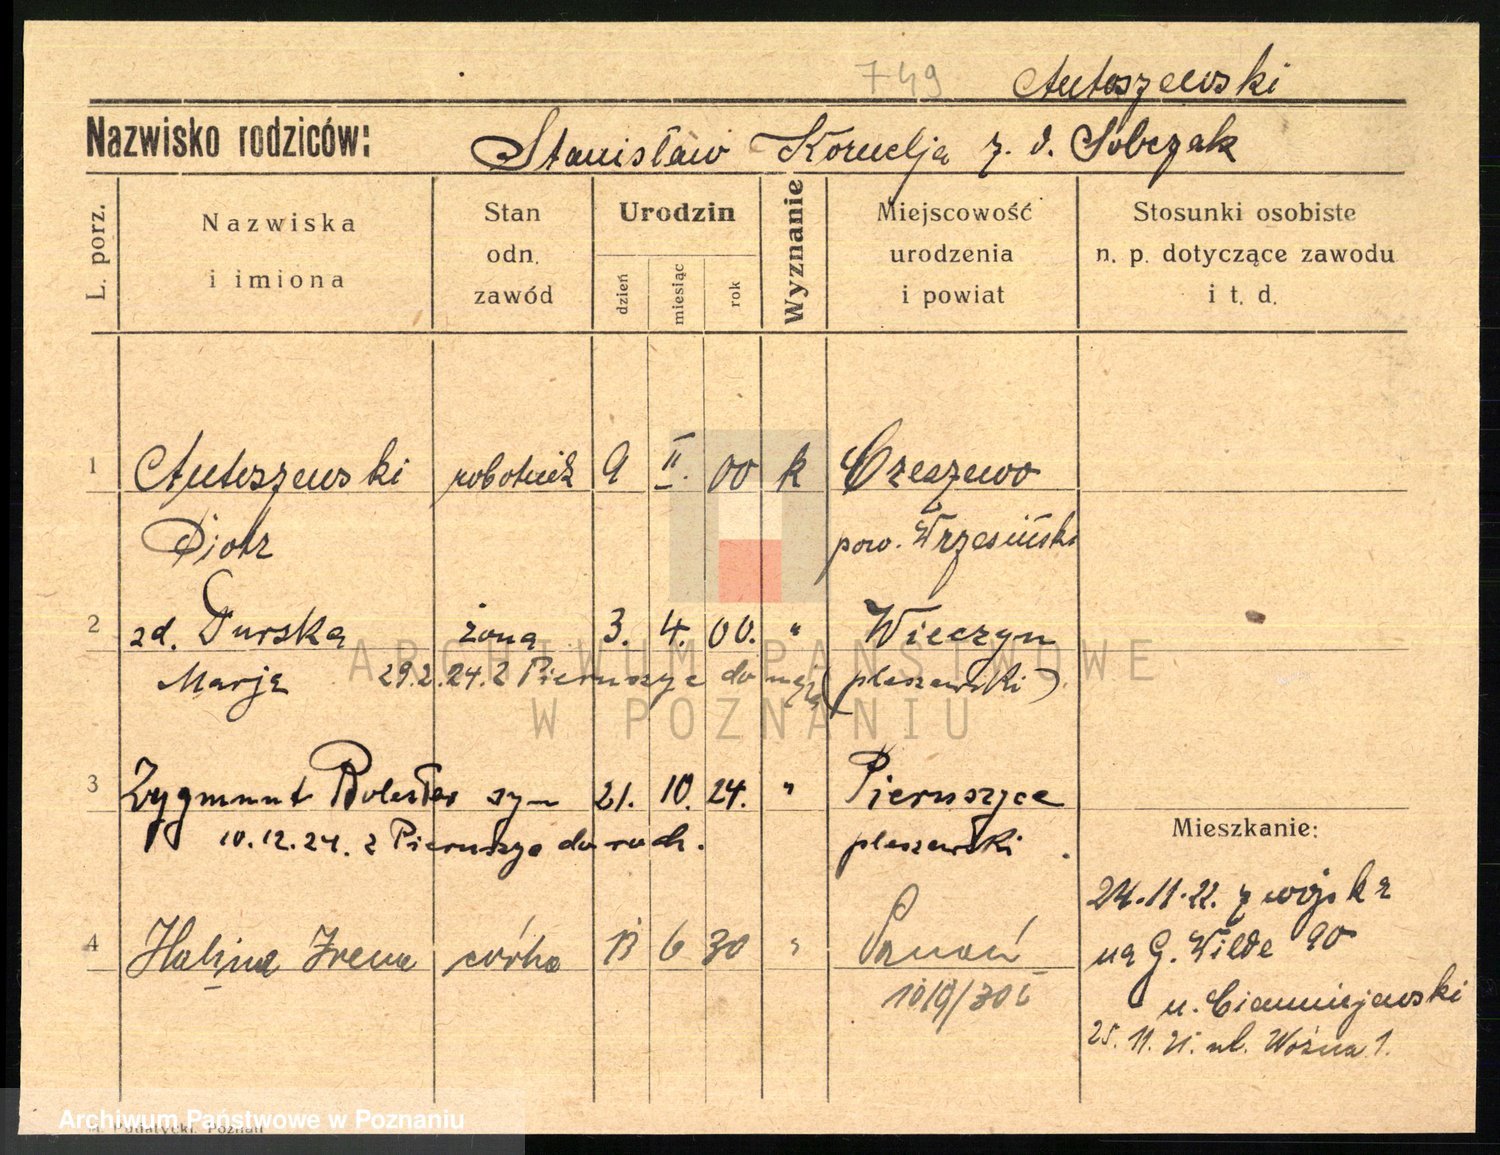 749
Antoszewski
Nazwisko rodziców: Stanisław Kornelja z. d. Sobczak
L. porz.
Nazwiska i imiona
Stan odn. zawód
Urodzin
dzień
miesiąc
rok
Wyznanie
Miejscowość urodzenia i powiat
Stosunki osobiste n. p. dotyczące zawodu i t. d.
1 Antoszewski robotnik 9 II. 00 k Czeszewo
Piotr pow. Wrzesiński
2 zd. Durska żona 3. 4. 00. " Wieczyn
Marja 29.2.24. z Pieruszyc do męża (pleszewski)
3 Zygmunt Bolesław syn 21. 10. 24. " Pieruszyce
10.12.24. z Pieruszyc do rodz. pleszewski.
4 Halina Irena córka 13 6 30 " Poznań
Mieszkanie:
24.11.22. z wojska
na G. Wilde 90
u. Ciemniejewski
25. 11. 25. ul. Woźna 1.
ARCHIWUM PAŃSTWOWE
W POZNANIU
Archiwum Państwowe w Poznaniu